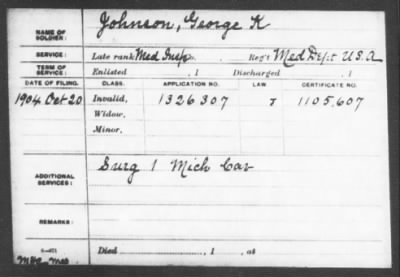 Johnson, George K
NAME OF SOLDIER:
SERVICE: Late rank Med Insp, Reg't Med Dept U.S.A
TERM OF SERVICE: Enlisted , 1 Discharged , 1
DATE OF FILING. CLASS. APPLICATION NO. LAW. CERTIFICATE NO.
1904 Oct 20 Invalid, 1326307 1105,607
Widow,
Minor,
ADDITIONAL SERVICES: Surg 1 Mich Cav
REMARKS:
Died , 1 , at